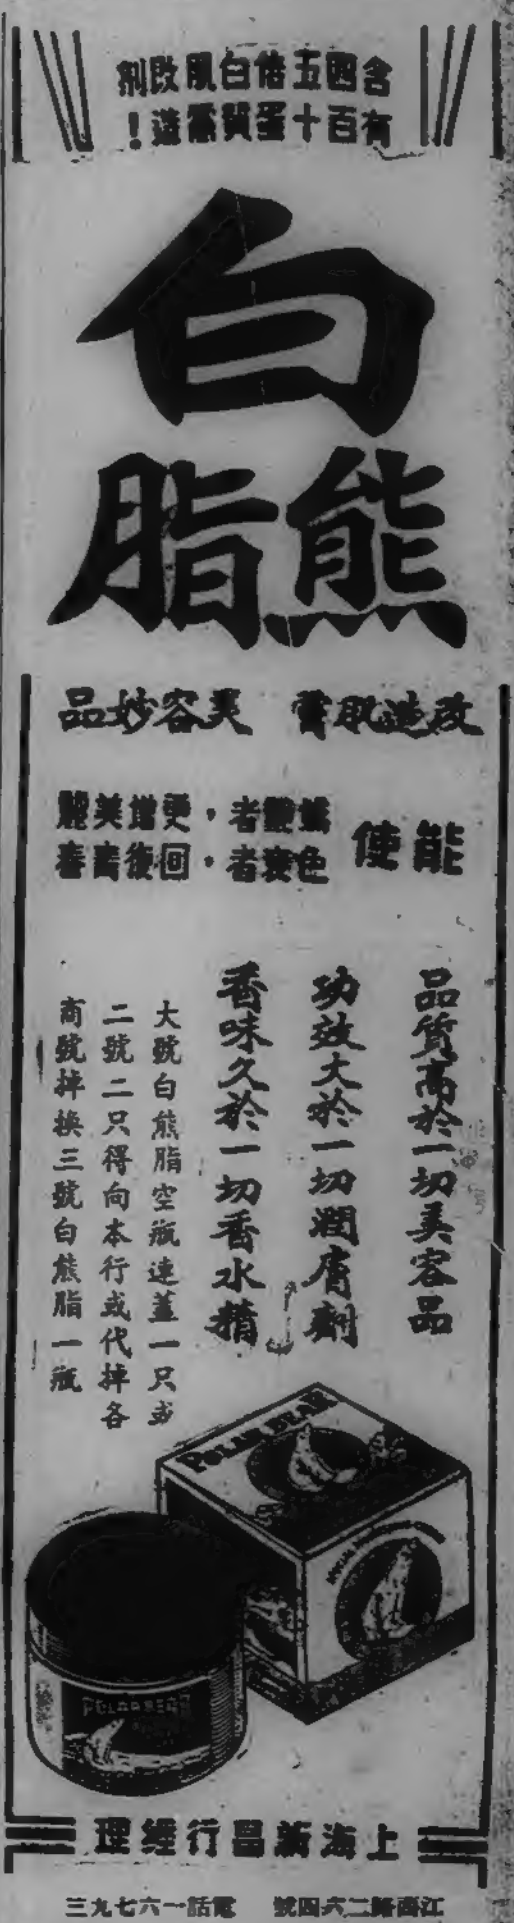 含四五倍白肌改劑
有百十蛋質膚造！
白
熊脂
改造肌膚　美容妙品
能使
嬌艷者，更增美麗
色衰者，回復青春
品質高於一切美容品
功效大於一切潤膚劑
香味久於一切香水精
大號白熊脂空瓶連蓋一只或
二號二只得向本行或代掉各
商號掉換三號白熊脂一瓶
POLAR BEAR
POLAR BEAR
上海新昌行經理
江西路二六四號　電話一六七九三